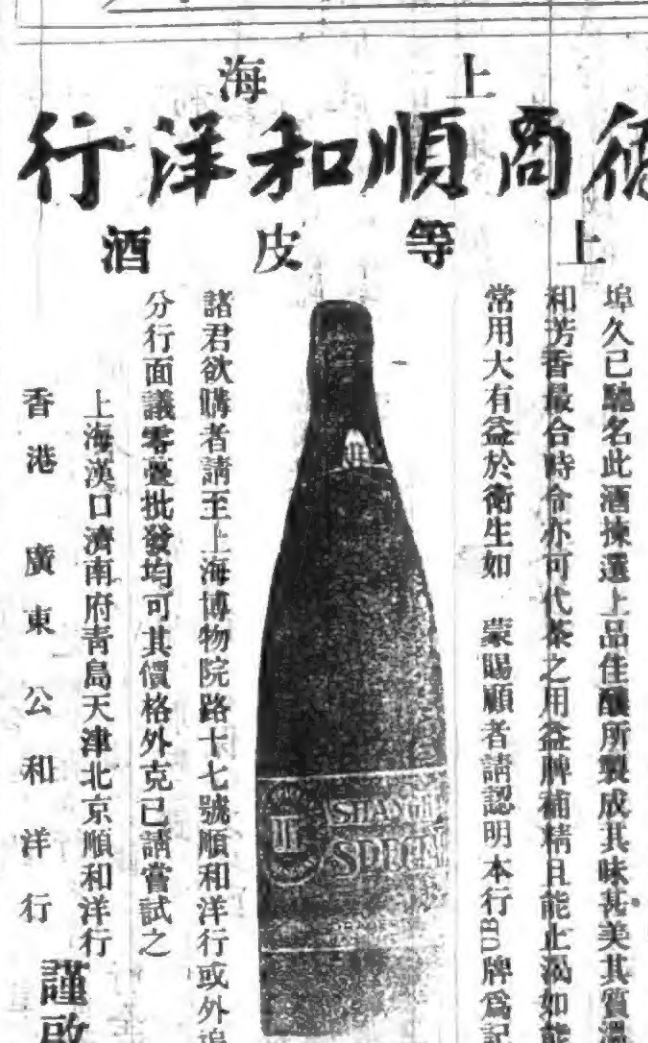 上海
德商順和洋行
上等皮酒
埠久已馳名此酒揀選上品佳釀所製成其味甚美其質溫
和芳香最合時令亦可代茶之用益脾補精且能止渴如能
常用大有益於衛生如 蒙賜顧者請認明本行 牌爲記
SHANGH
SPECIAL
諸君欲購者請至上海博物院路十七號順和洋行或外埠
分行面議零躉批發均可其價格外克己請嘗試之
上海漢口濟南府青島天津北京順和洋行
香港 廣東 公和洋行
謹啟